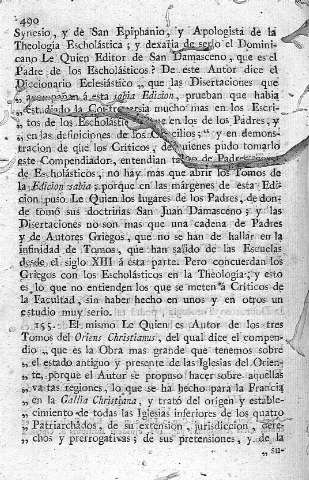 490
Synesio, y de San Epiphanio, y Apologista de la
Theología Escholástica; y dexaría de serlo el Domini-
cano Le Quien Editor de San Damasceno, que es el
Padre de los Escholásticos? De este Autor dice el
Diccionario Eclesiástico „ que las Disertaciones que
„ acompañan á esta sabia Edicion, prueban que habia
„ estudiado la Controversia mucho mas en los Escri-
„ tos de los Escholásticos que en los de los Padres, y
„ en las definiciones de los Concilios;" y en demons-
tracion de que los Criticos, de quienes pudo tomarlo
este Compendiador, entendian Padres
de Escholásticos, no hay mas que abrir los Tomos de
la Edicion sabia; porque en las márgenes de esta Edi-
cion puso Le Quien los lugares de los Padres, de don-
de tomó sus doctrinas San Juan Damasceno; y las
Disertaciones no son mas que una cadena de Padres
y de Autores Griegos, que no se han de hallar en la
infinidad de Tomos, que han salido de las Escuelas
desde el siglo XIII á esta parte. Pero concuerdan los
Griegos con los Escholásticos en la Theología; y esto
es lo que no entienden los que se meten á Criticos de
la Facultad, sin haber hecho en unos y en otros un
estudio muy serio.
155. El mismo Le Quien es Autor de los tres
Tomos del Oriens Christianus, del qual dice el compen-
dio „ que es la Obra mas grande que tenemos sobre
„ el estado antiguo y presente de las Iglesias del Orien-
„ te, porque el Autor se propuso hacer sobre aquellas
„ vastas regiones, lo que se ha hecho para la Francia
„ en la Gallia Christiana, y trató del origen y estable-
„ cimiento de todas las Iglesias inferiores de los quatro
„ Patriarchados, de su extension, jurisdiccion, dere-
„ chos y prerrogativas; de sus pretensiones, y de la
„ su-